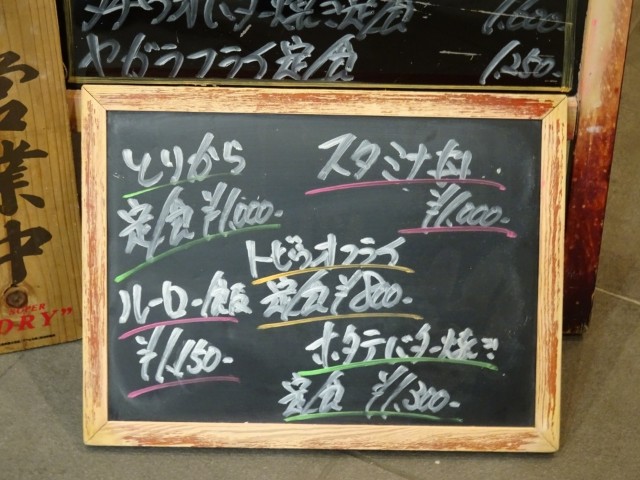 バター焼き定食 1,600-
ヤガラフライ定食 1,250-
営業中
SUPER
DRY"
とりから
定食 ¥1,000-
スタミナ丼
¥1,000-
トビウオフライ
定食 ¥800-
ルーロー飯
¥1,150-
ホタテバター焼き
定食 ¥1,300-